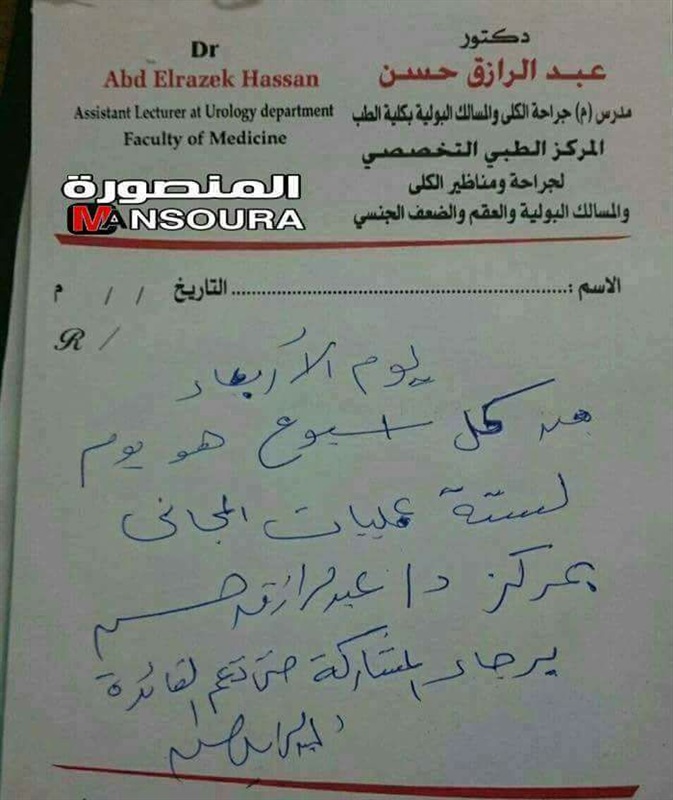 Dr
Abd Elrazek Hassan
Assistant Lecturer at Urology department
Faculty of Medicine
دكتور
عبد الرازق حسن
مدرس (م) جراحة الكلى والمسالك البولية بكلية الطب
المركز الطبي التخصصي
لجراحة ومناظير الكلى
والمسالك البولية والعقم والضعف الجنسي
المنصورة
MANSOURA
الاسم :........................................ التاريخ / / م
R/
يوم الأربعاء
من كل اسبوع هو يوم
لستة عمليات المجانى
بمركز د/ عبدالرازق حسن
برجاء المشاركة حتى تعم الفائدة